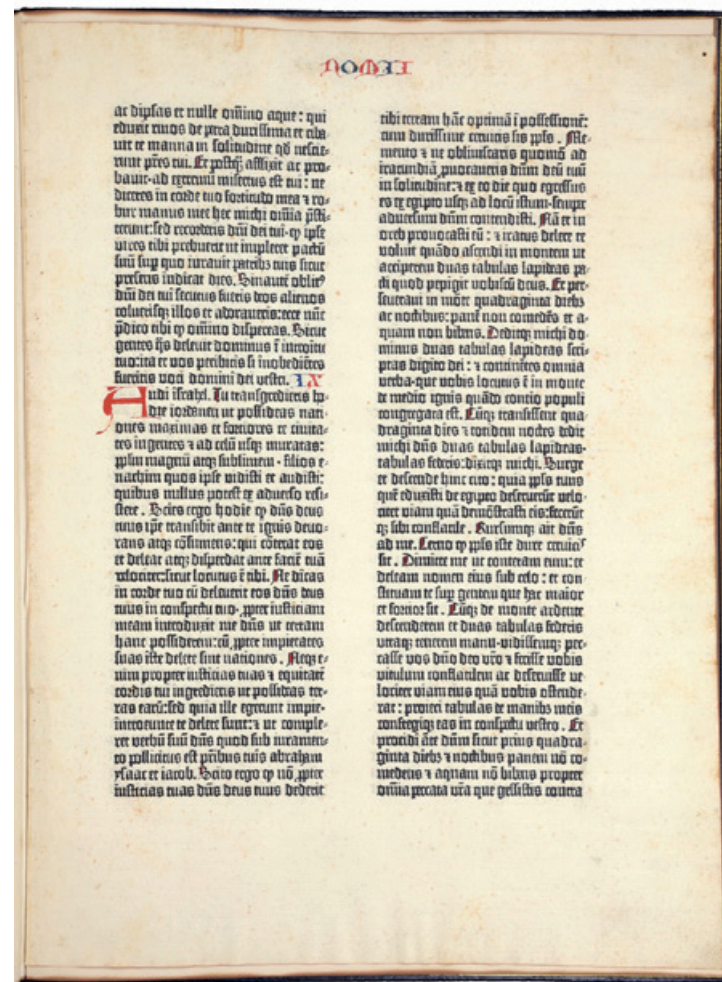 NOMII
ac dipsas et nulle om̄ino aque: qui
eduxit rivos de petra durissima et ciba-
vit te manna in solitudine qd̄ nescie-
runt p̄res tui. Et postq̄ afflixit ac pro-
bavit·ad extremū misertus est tui: ne
diceres in corde tuo fortitudo mea ⁊ ro-
bur manus mee hec michi om̄ia p̄sti-
terunt: sed recorderis dn̄i dei tui·ꝙ ipse
vires tibi prebuerit ut impleret pactū
suū sup quo iuravit patribꝫ tuis sicut
presens indicat dies. Sin aut̄ oblitꝰ
dn̄i dei tui secutus fueris deos alienos
coluerisqꝫ illos et adoraveris: ecce nūc
p̄dico tibi ꝙ om̄ino dispereas. Sicut
gentes q̄s delevit dominus ī introitu
tuo: ita et vos peribitis si inobediētes
fueritis voci domini dei vestri. IX
Audi israhel. Tu transgredieris ho-
die iordanem ut possideas nati-
ones maximas et fortiores te civita-
tes ingentes et ad celū usqꝫ muratas:
pp̄lm magnū atqꝫ sublimem·filios e-
nachim quos ipse vidisti et audisti:
quibus nullus potest ex adverso resi-
stere. Scies ergo hodie ꝙ dn̄s deus
tuus ip̄e transibit ante te ignis devo-
rans atqꝫ cōsumens: qui cōterat eos
et deleat atqꝫ disperdat ante faciē tuā
velociter: sicut locutus ē tibi. Ne dicas
in corde tuo cū deleverit eos dn̄s deus
tuus in conspectu tuo·ꝓpter iusticiam
meam introduxit me dn̄s ut terram
hanc possiderem: cū ꝓpter impietates
suas iste delete sint nationes. Neqꝫ e-
nim propter iusticias tuas ⁊ equitatē
cordis tui ingredieris ut possideas ter-
ras eacū: sed quia ille egerunt impie·
introeunte te delete sunt: ⁊ ut comple-
ret verbū suū dn̄s quod sub iuramen-
to pollicitus est p̄ribus tuis abraham
ysaac et iacob. Scito ergo ꝙ nō ꝓpter
iusticias tuas dn̄s deus tuus dederit
tibi terram hāc optimā ī possessionē:
cum durissime cervicis sis pp̄ls. Me-
mento ⁊ ne obliviscaris quomō ad
iracundiā ꝓvocaveris dn̄m deū tuū
in solitudine: ⁊ ex eo die quo egressus
es ex egipto usqꝫ ad locū istum·semper
adversum dn̄m contendisti. Nā et in
oreb provocasti eū: ⁊ iratus delere te
voluit quādo ascendi in montem ut
acciperem duas tabulas lapideas pa-
cti quod pepigit vobiscū deus. Et per-
severavi in mōte quadraginta diebꝫ
ac noctibus: panē non comedēs et a-
quam non bibens. Deditqꝫ michi do-
minus duas tabulas lapideas scri-
ptas digito dei: ⁊ continētes omnia
verba·que vobis locutus ē in monte
de medio ignis quādo contio populi
congregata est. Cūqꝫ transissent qua-
draginta dies ⁊ totidem noctes dedit
michi dn̄s duas tabulas lapideas·
tabulas federis: dixitqꝫ michi. Surge
et descende hinc cito: quia pp̄ls tuus
quē eduxisti de egipto deseruerūt velo-
citer viam quā demōstrasti eis: fecerūt
qꝫ sibi conflatile. Rursumqꝫ ait dn̄s
ad me. Cerno ꝙ pp̄ls iste dure cervicꝭ
sit. Dimitte me ut conteram eum: et
deleam nomen eius sub celo: et con-
stituam te sup gentem que hac maior
et fortior sit. Cūqꝫ de monte ardente
descenderem et duas tabulas federis
utraqꝫ tenerem manu·vidissemqꝫ pec-
casse vos dn̄o deo vr̄o ⁊ fecisse vobis
vitulum conflatilem ac deseruisse ve-
lociter viam eius quā vobis ostende-
rat: proieci tabulas de manibꝫ meis
confregiqꝫ eas in conspectu vestro. Et
procidi āte dn̄m sicut prius quadra-
ginta diebꝫ ⁊ noctibus panem nō co-
medens ⁊ aquam nō bibens propter
om̄ia peccata vr̄a que gessistis contra